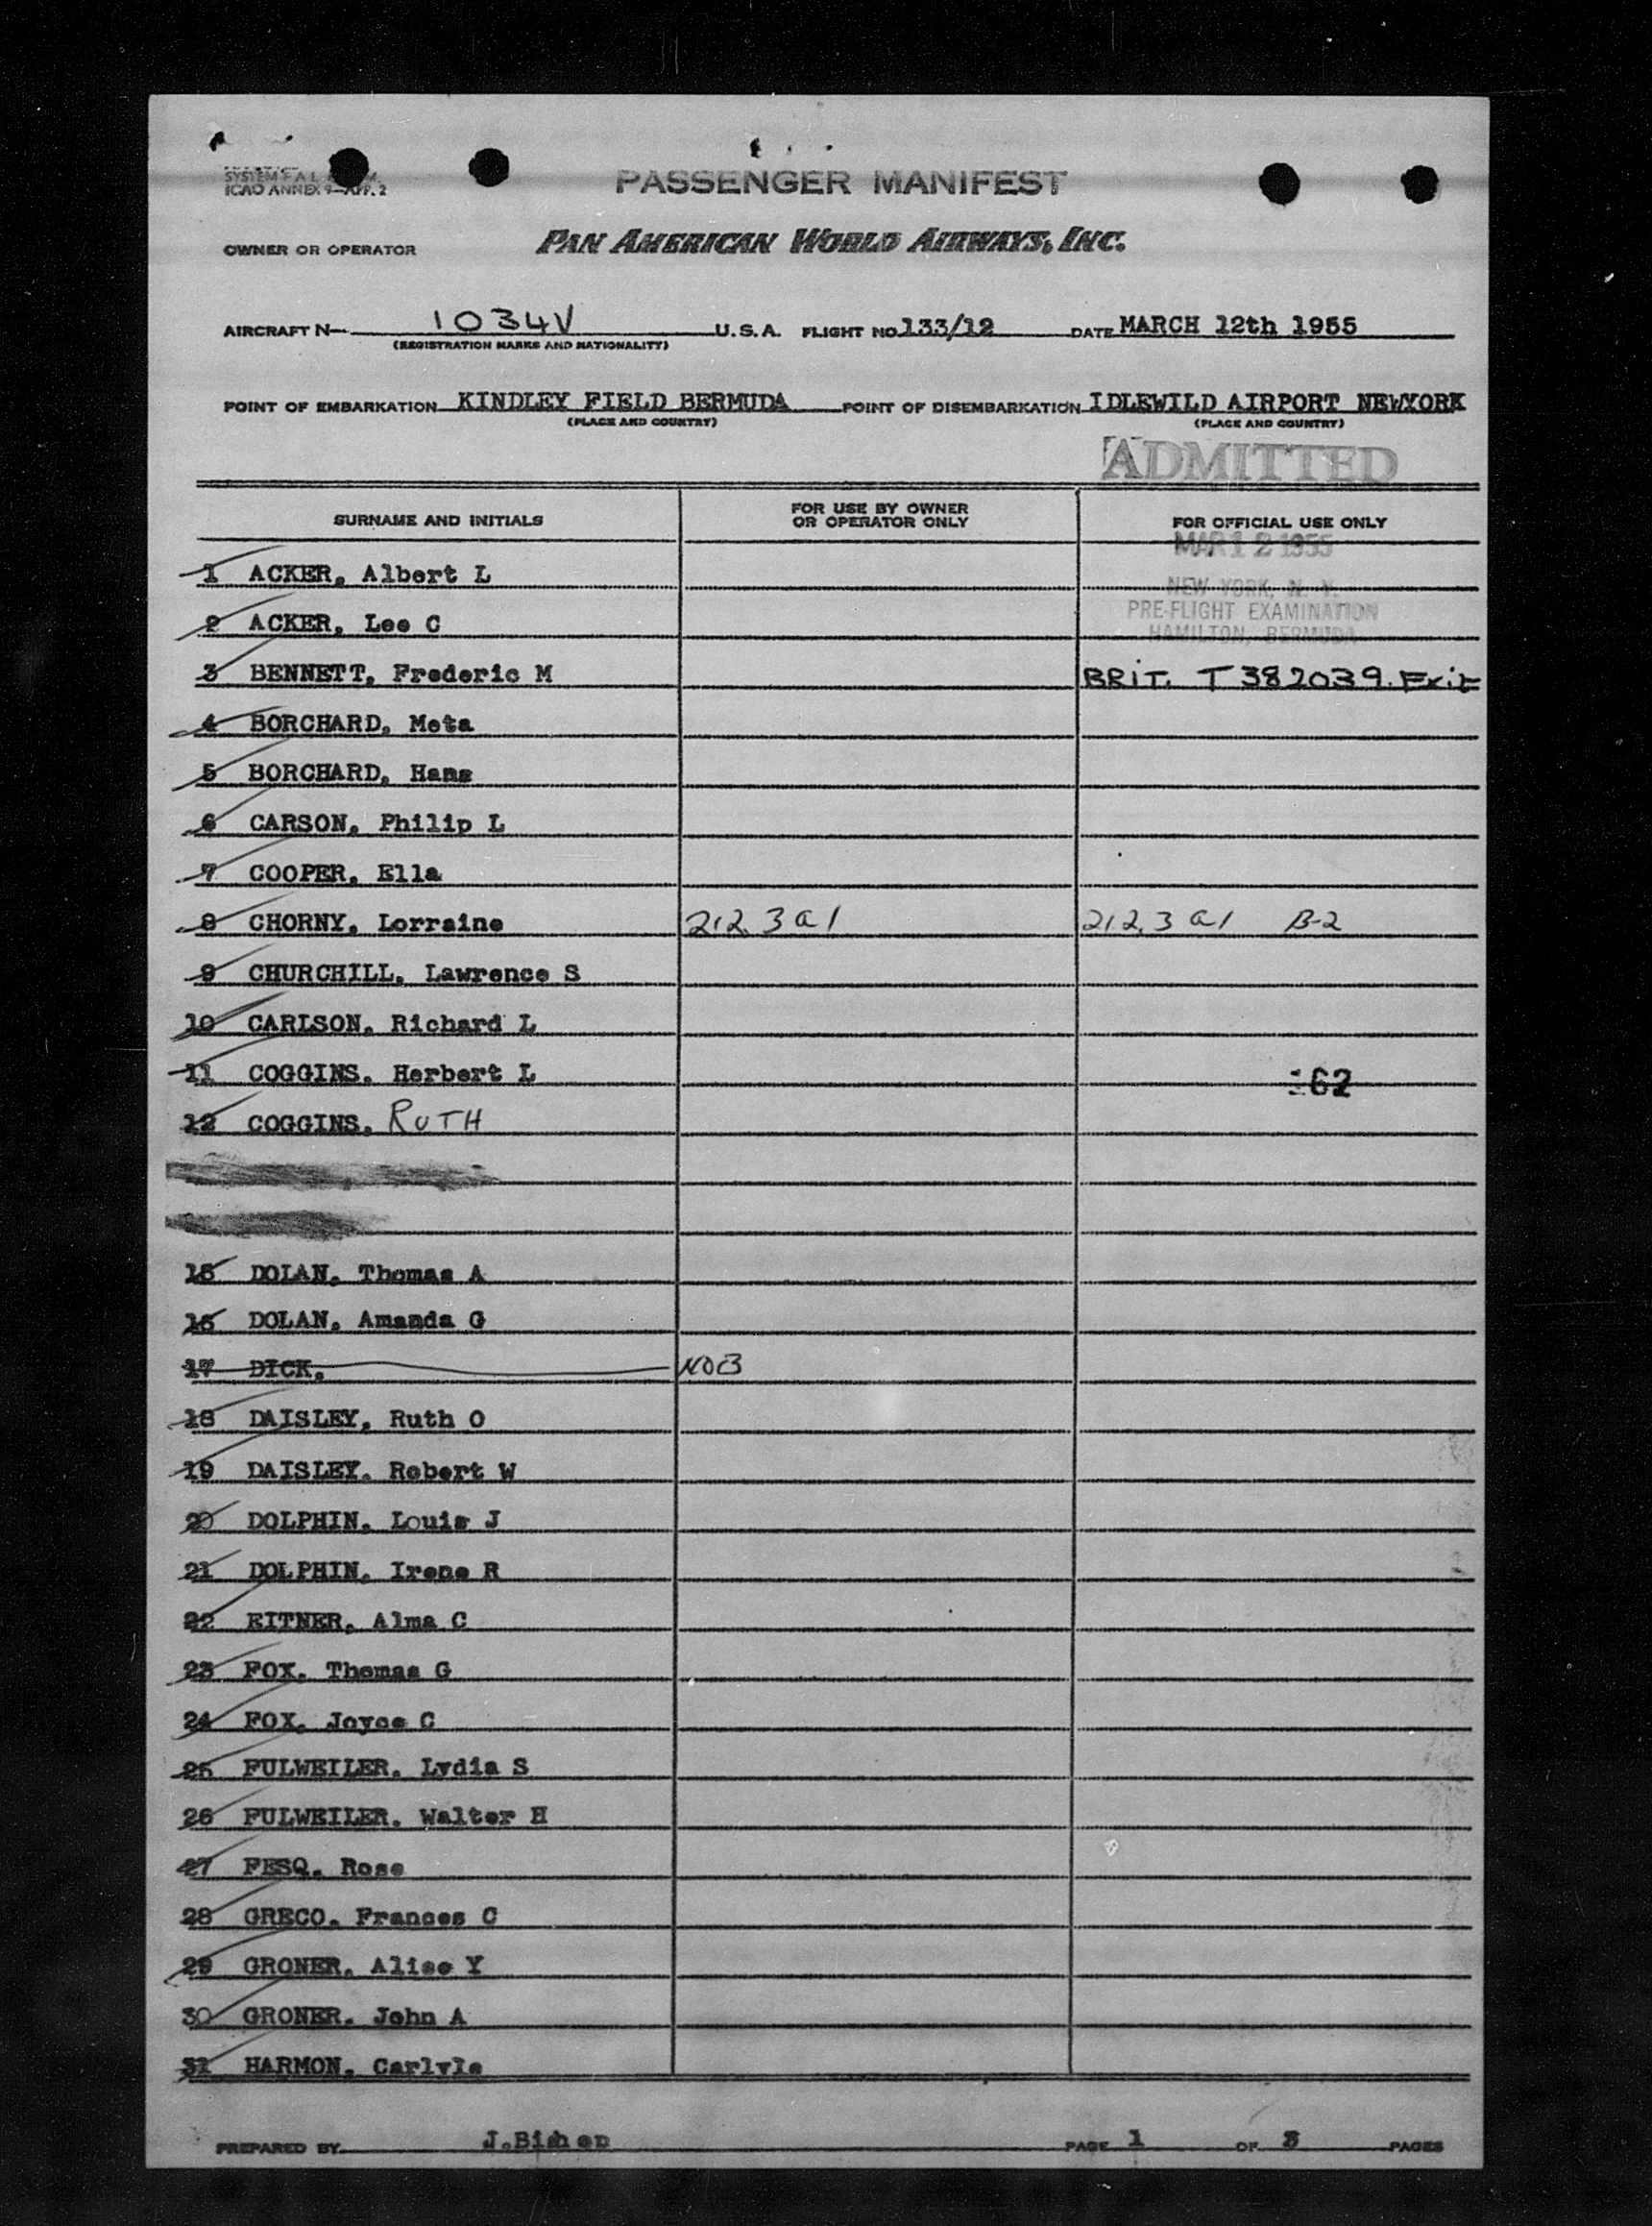 SYSTEM F.A.L.
ICAO ANNEX 9—APP. 2
PASSENGER MANIFEST
OWNER OR OPERATOR PAN AMERICAN WORLD AIRWAYS, INC.
AIRCRAFT N— 1034V U.S.A. FLIGHT NO. 133/12 DATE MARCH 12th 1955
(REGISTRATION MARKS AND NATIONALITY)
POINT OF EMBARKATION KINDLEY FIELD BERMUDA POINT OF DISEMBARKATION IDLEWILD AIRPORT NEWYORK
(PLACE AND COUNTRY) (PLACE AND COUNTRY)
ADMITTED
SURNAME AND INITIALS FOR USE BY OWNER OR OPERATOR ONLY FOR OFFICIAL USE ONLY
MAR 12 1955
1 ACKER, Albert L NEW YORK, N. Y.
PRE-FLIGHT EXAMINATION
2 ACKER, Lee C HAMILTON, BERMUDA
3 BENNETT, Frederic M BRIT. T 382039. Exit
4 BORCHARD, Meta
5 BORCHARD, Hans
6 CARSON, Philip L
7 COOPER, Ella
8 CHORNY, Lorraine 212.3 a1 212.3 a1 B-2
9 CHURCHILL, Lawrence S
10 CARLSON, Richard L
11 COGGINS, Herbert L 62
12 COGGINS, RUTH
15 DOLAN, Thomas A
16 DOLAN, Amanda G
17 DICK, NOB
18 DAISLEY, Ruth O
19 DAISLEY, Robert W
20 DOLPHIN, Louis J
21 DOLPHIN, Irene R
22 EITNER, Alma C
23 FOX, Thomas G
24 FOX, Joyce C
25 FULWEILER, Lydia S
26 FULWEILER, Walter H
27 FESQ, Rose
28 GRECO, Frances C
29 GRONER, Alice Y
30 GRONER, John A
31 HARMON, Carlyle
PREPARED BY J.Bishop PAGE 1 OF 3 PAGES